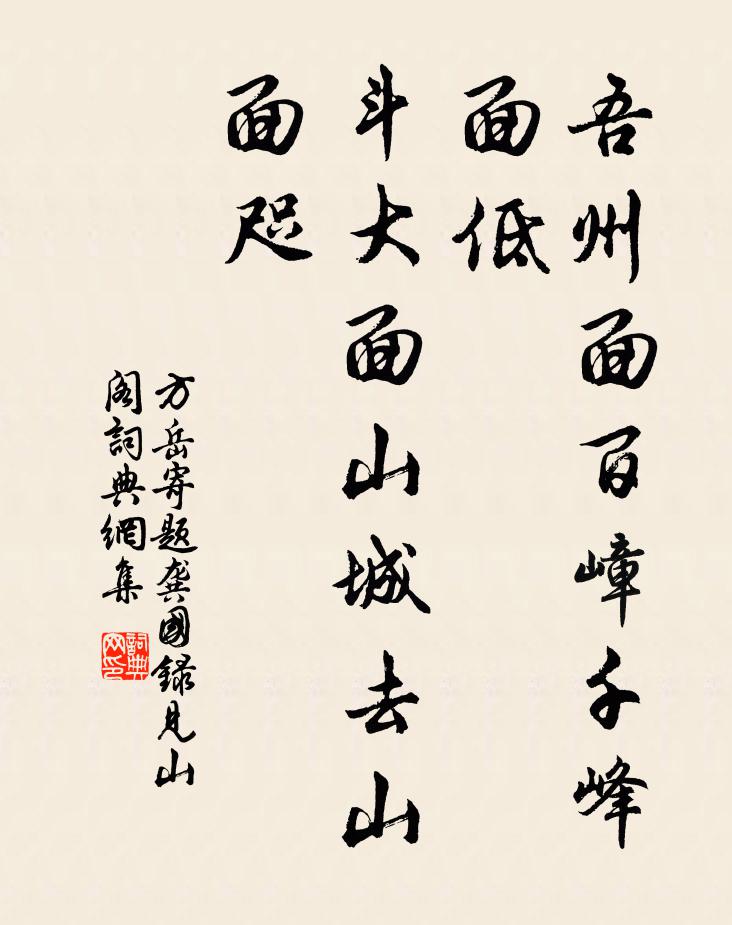 吾州面百嶂千峰
面低
斗大面山城去山
面咫
方岳寄题龚國録見山
阁詞典網集
詞典
网印